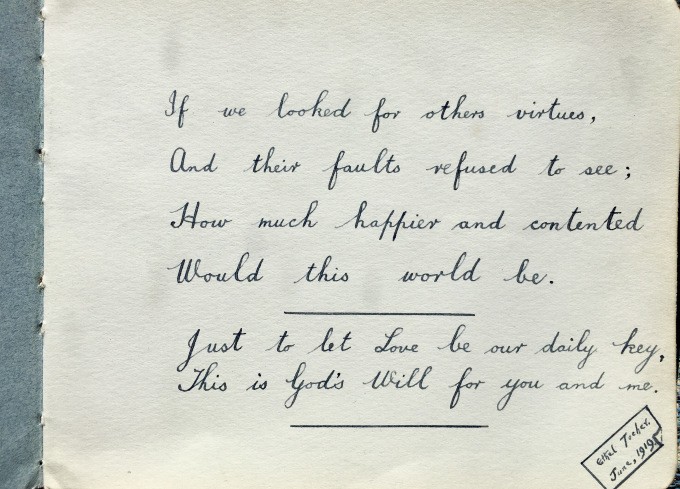 If we looked for others virtues,
And their faults refused to see;
How much happier and contented
Would this world be.
Just to let Love be our daily key,
This is God's Will for you and me.
Ethel
June, 1919